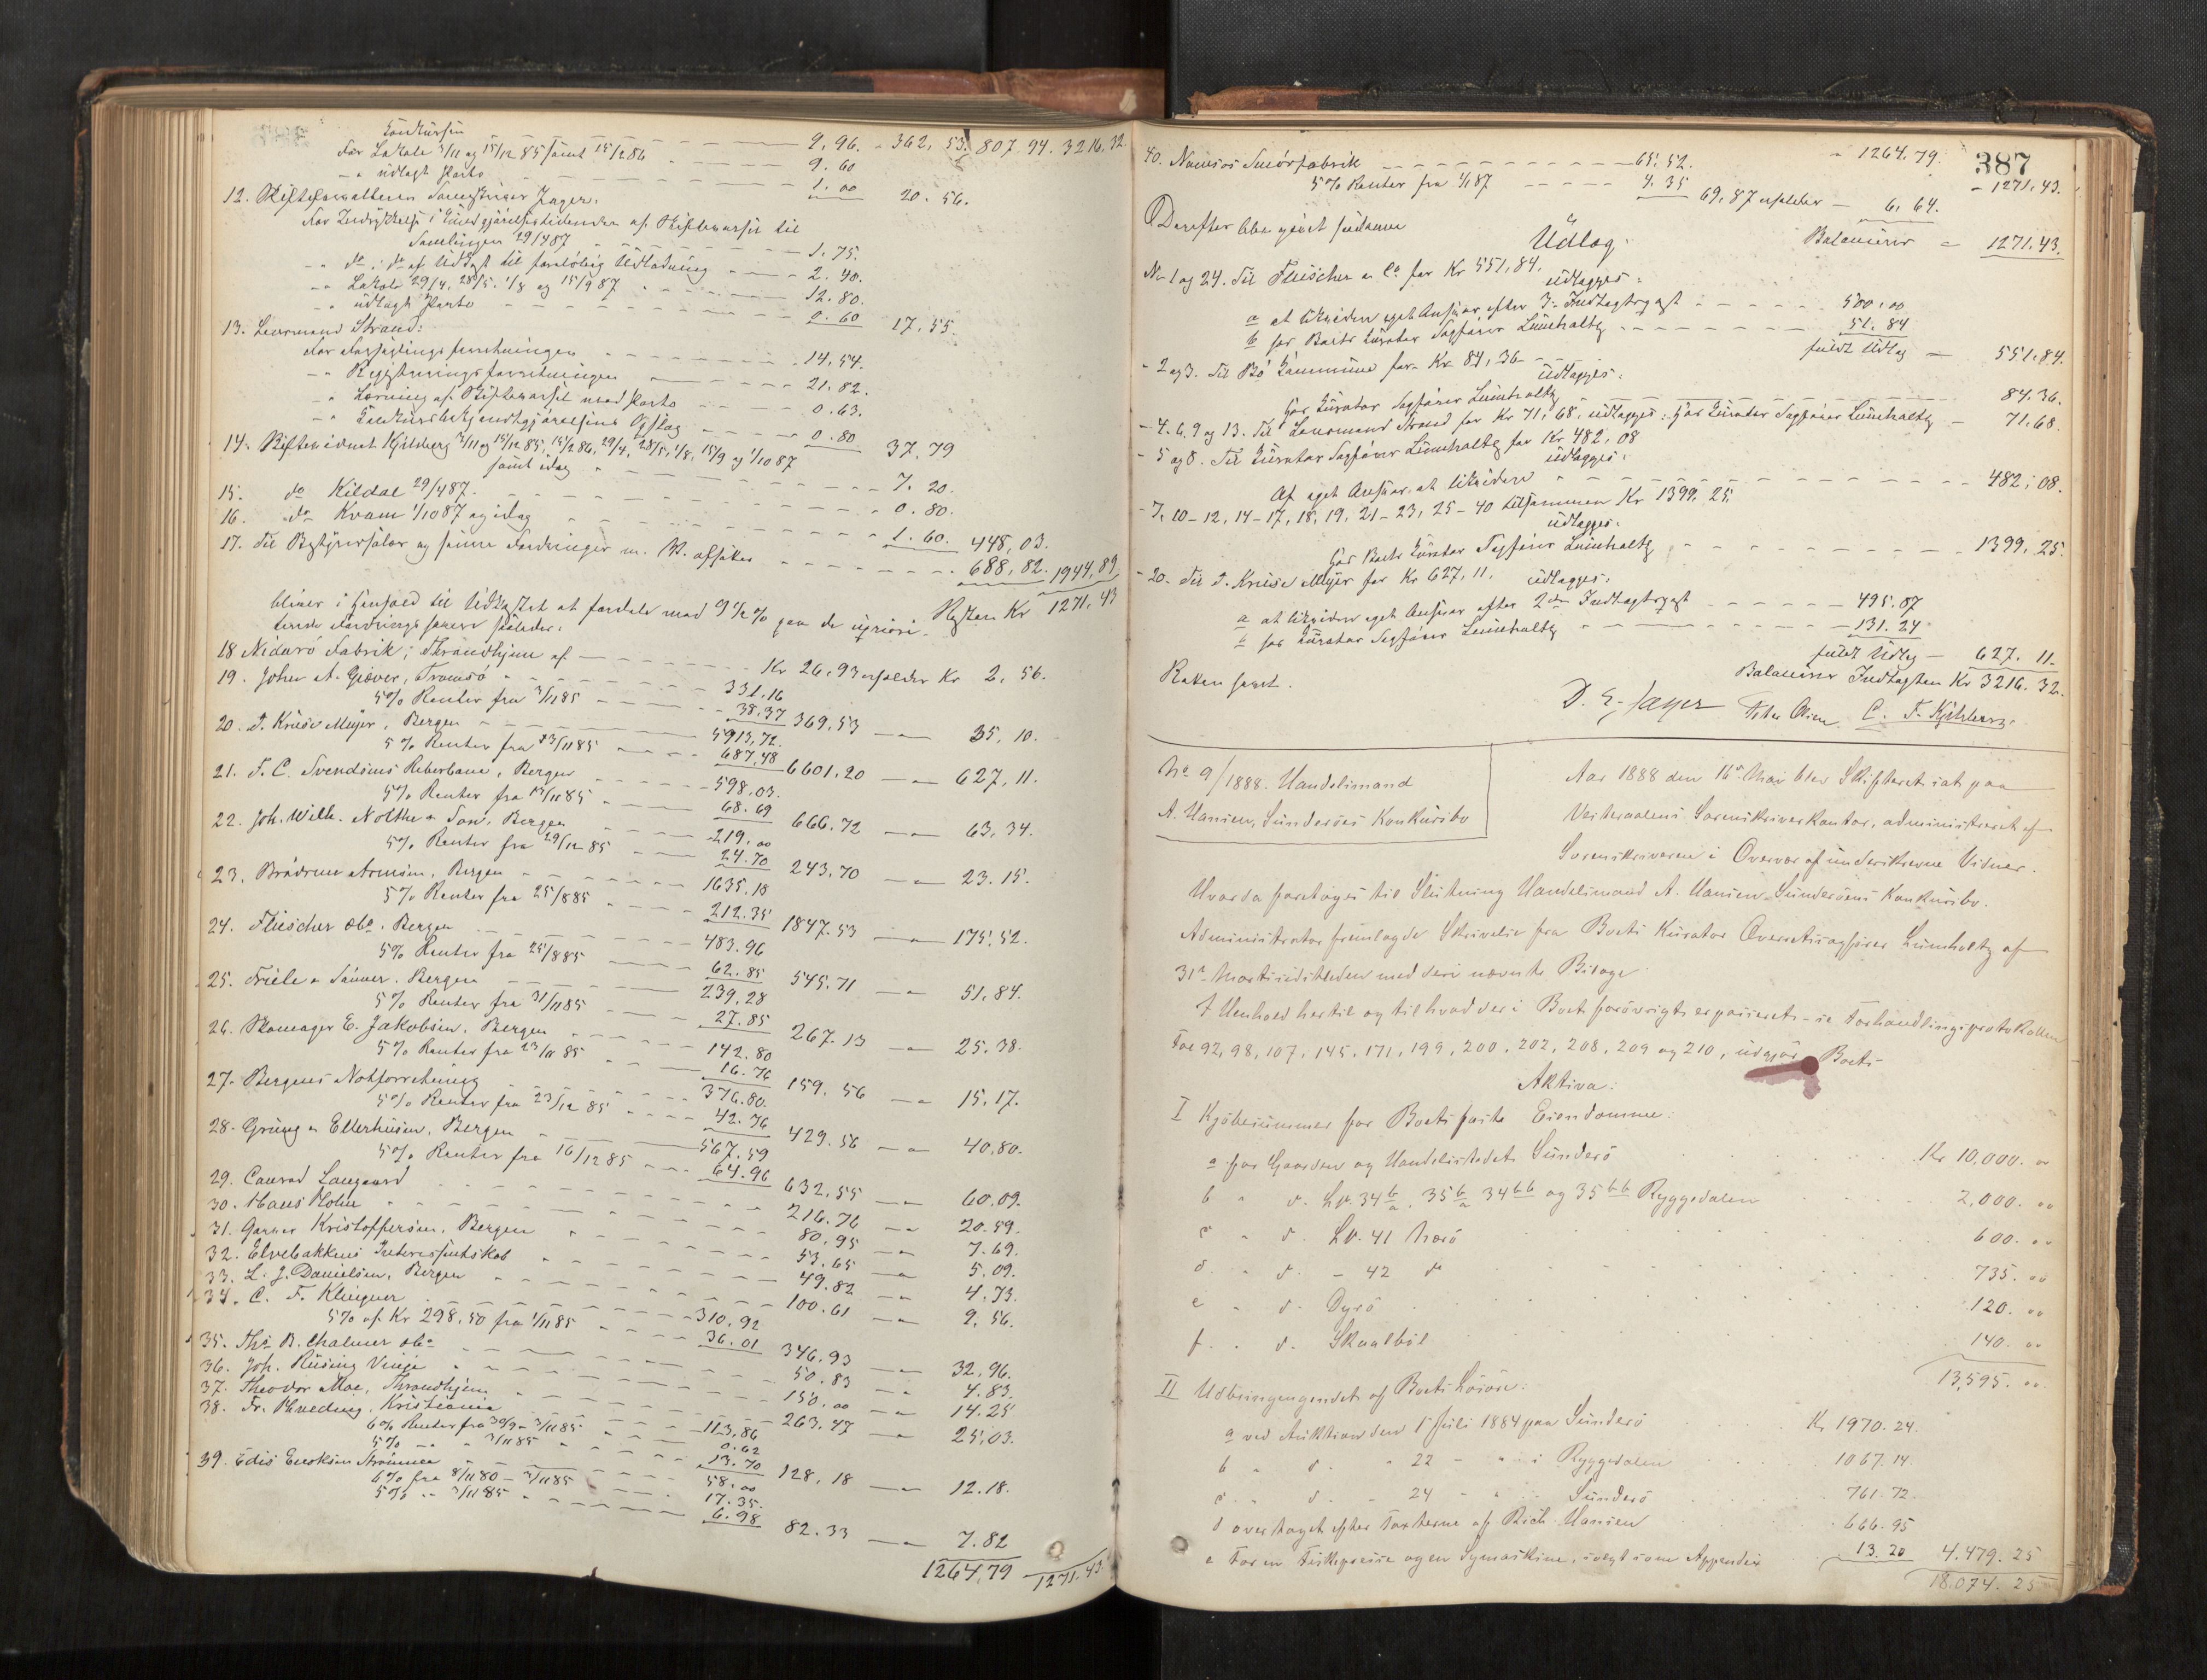 Konkursen 9,96. 362,53. 807,94. 3216,32.
for Lokale 3/11 og 15/12 85 samt 15/2 86 9.60
-"- udlagt Porto 1.00 20.56.
12. Skifteforvalteren Sorenskriver Jager.
for Indrykkelse i Kundgjørelsestidenden af Skiftevarsel til
Samlingen 29/4 87 1.75.
-"- do i do af Udkast til foreløbig Udlodning 2.40.
-"- Lokale 29/4, 28/5, 1/8 og 15/9 87 12.80.
-"- udlagt Porto 0.60 17.55.
13. Lensmand Strand:
for Forseglingsforretningen 14,54.
-"- Registreringsforretningen 21,82.
-"- Lesning af Skiftevarsel med Porto 0.63.
-"- Konkursbekjendtgjørelsens Opslag 0.80 37.79
14. Skiftevidnet Kjilberg 3/11 og 15/12 85, 15/2 86, 29/4, 28/5, 1/8, 15/9 og 1/10 87
samt idag 7.20.
15. do Kildal 29/4 87. 0.80.
16. do Kvam 1/10 87 og idag 1.60. 448,03.
17. Til Bestyrersalær og senere Fordringer m. V. afsættes 688,82. 1944,89
Resten Kr 1271,43
bliver i Henhold til Udkastet at fordele med 9 1/2 % paa de uprior-
terede Fordringshavere saaledes:
18 Nidarø Fabrik, Throndhjem af Kr 26,93 erholder Kr 2,56.
19. Johan A. Giæver, Tromsø 331.16
5% Renter fra 3/11 85 38.37 369,53 -"- 35,10.
20. D. Kruse Meyer, Bergen 5913,72.
5% Renter fra 23/11 85 687,48 6601,20 -"- 627,11.
21. F. C. Svendsens Reberbane, Bergen 598,03.
5% Renter fra 15/11 85 68.69 666.72 -"- 63,34.
22. Joh. Wilh. Nolthe & Søn, Bergen 219,00
5% Renter fra 29/12 85 24.70 243,70 -"- 23.15.
23. Brødrene Arnesen, Bergen 1635.18
5% Renter fra 25/8 85 212.35 1847.53 -"- 175.52.
24. Fleischer & Co, Bergen 483.96
5% Renter fra 25/8 85 62.85 545.71 -"- 51,84.
25. Friele & Sønner. Bergen 239,28
5% Renter fra 3/11 85 27.85 267.13 -"- 25.38.
26. Skomager E. Jakobsen, Bergen 142.80
5% Renter fra 23/11 85 16.76 159.56 -"- 15,17.
27. Bergens Notforretning 376.80.
5% Renter fra 23/12 85 42.76 429.56 -"- 40,80.
28. Grung & Ellerhusen, Bergen 567.59
5% Renter fra 16/12 85 64.96 632,55 -"- 60.09.
29. Conrad Langaard 216.76 -"- 20.59.
30. Hans Holm 80,95 -"- 7.69.
31. Garver Kristoffersen, Bergen 53.65 -"- 5.09.
32. Elvebakkens Interessentskab 49.82 -"- 4.73.
33. L. J. Danielsen, Bergen 100.61 -"- 9.56.
34. C. F. Klingner 310.92
5% af Kr 298.50 fra 1/11 85 36.01 346.93 -"- 32.96.
35. Ths B. Chalmer & Co 50.83 -"- 4.83.
36. Joh. Rusing Vinje 150.00 -"- 14.25
37. Theodor Moe, Throndhjem 263,47 -"- 25,03.
38. Fr. Bruding, Kristiania 113,86
6% Renter fra 30/9 - 3/11 85 0.62
5% -"- " 3/11 85 13.70 128,18 -"- 12.18.
39. Edis Enoksen Strømmen 58.00
6% fra 8/11 80 - 3/11 85 17.35.
5% -"- 3/11 85 6.98 82.33 -"- 7.82
1264,79 1271.43.
387
40. Namsos Smørfabrik 65,52. " 1264.79. " 1271,43.
5% Renter fra 1/1 87 4.35 69.87 erholder - 6,64.
Balancerer " 1271,43.
Derefter blev gjort saadanne
Udlæg:
No 1 og 24. Til Fleischer & Co for Kr 551,84.
udlægges:
a at likvidere eget Ansvar efter 3. Indtægtspost 500,00
b hos Boets Kurator Sagfører Lumholtz 51.84
fuldt Udlæg - 551,84.
- 2 og 3. Til Bø Kommune for Kr 84,36
udlægges:
hos Kurator Sagfører Lumholtz 84.36.
- 4. 6. 9 og 13. Til Lensmand Strand for Kr 71,68, udlægges: hos Kurator Sagfører Lumholtz - 71.68.
- 5 og 8. Til Kurator Sagfører Lumholtz for Kr 482,08
udlægges:
Af eget Ansvar at likvidere 482,08.
- 7, 10-12, 14-17, 18, 19, 21-23, 25-40 tilsammen Kr 1399.25
udlægges:
hos Boets Kurator Sagfører Lumholtz 1399,25.
- 20. Til D. Kruse Meyer for Kr 627,11. udlægges:
a at likvidere eget Ansvar efter 2den Indtægtspost 495.87
b hos Kurator Sagfører Lumholtz 131.24
fuldt Udlæg - 627.11.
Balancerer Indtægten Kr 3216.32.
Retten hævet.
D. E. Jager Peter Olsen C. F. Kjilberg.
No 9/1888. Handelsmand
A. Hansen, Sunderøes Konkursbo
Aar 1888 den 16de Mai blev Skifteret sat paa
Vesteraalens Sorenskriverkontor, administreret af
Sorenskriveren i Overvær af underskrevne Vidner.
Hvorda foretoges til Slutning Handelsmand A. Hansen Sunderøens Konkursbo.
Administrator fremlagde Skrivelse fra Boets Kurator Overretssagfører Lumholtz af
31te Marts sidstleden med deri nævnte Bilage
I Henhold hertil og til hvad der i Boet forøvrigt er passeret - se Forhandlingsprotokollen
Foe 92, 98, 107, 145, 171, 199, 200, 202, 208, 209 og 210, udgjør Boets
Aktiva:
I Kjøbesummer for Boets faste Eiendomme:
a for Gaarden og Handelsstedet Sunderø Kr 10,000.00
b " do. Lb. 34 b/a, 35 b/a 34 bb og 35 bb Ryggedalen 2,000.00
c " do. Lb. 41 Næsø 600.00
d. " do. - 42 do 735.00
e " do. Dyrø 120.00
f. " do. Skaalbøl 140.00
13,595.00.
II Udbringengendet af Boets Løsøre:
a ved Auktion den 15 Juli 1884 paa Sunderø Kr 1970.24.
b " do. " 22 - " i Ryggedalen 1067.14.
c " do. - 24 - " Sunderø 761.72.
d overtaget efter Taxterne af Rich. Hansen 666.95
e For en Fiskepresse og en Symaskine, solgt som Appendix 13.20 4.479.25
18.074.25